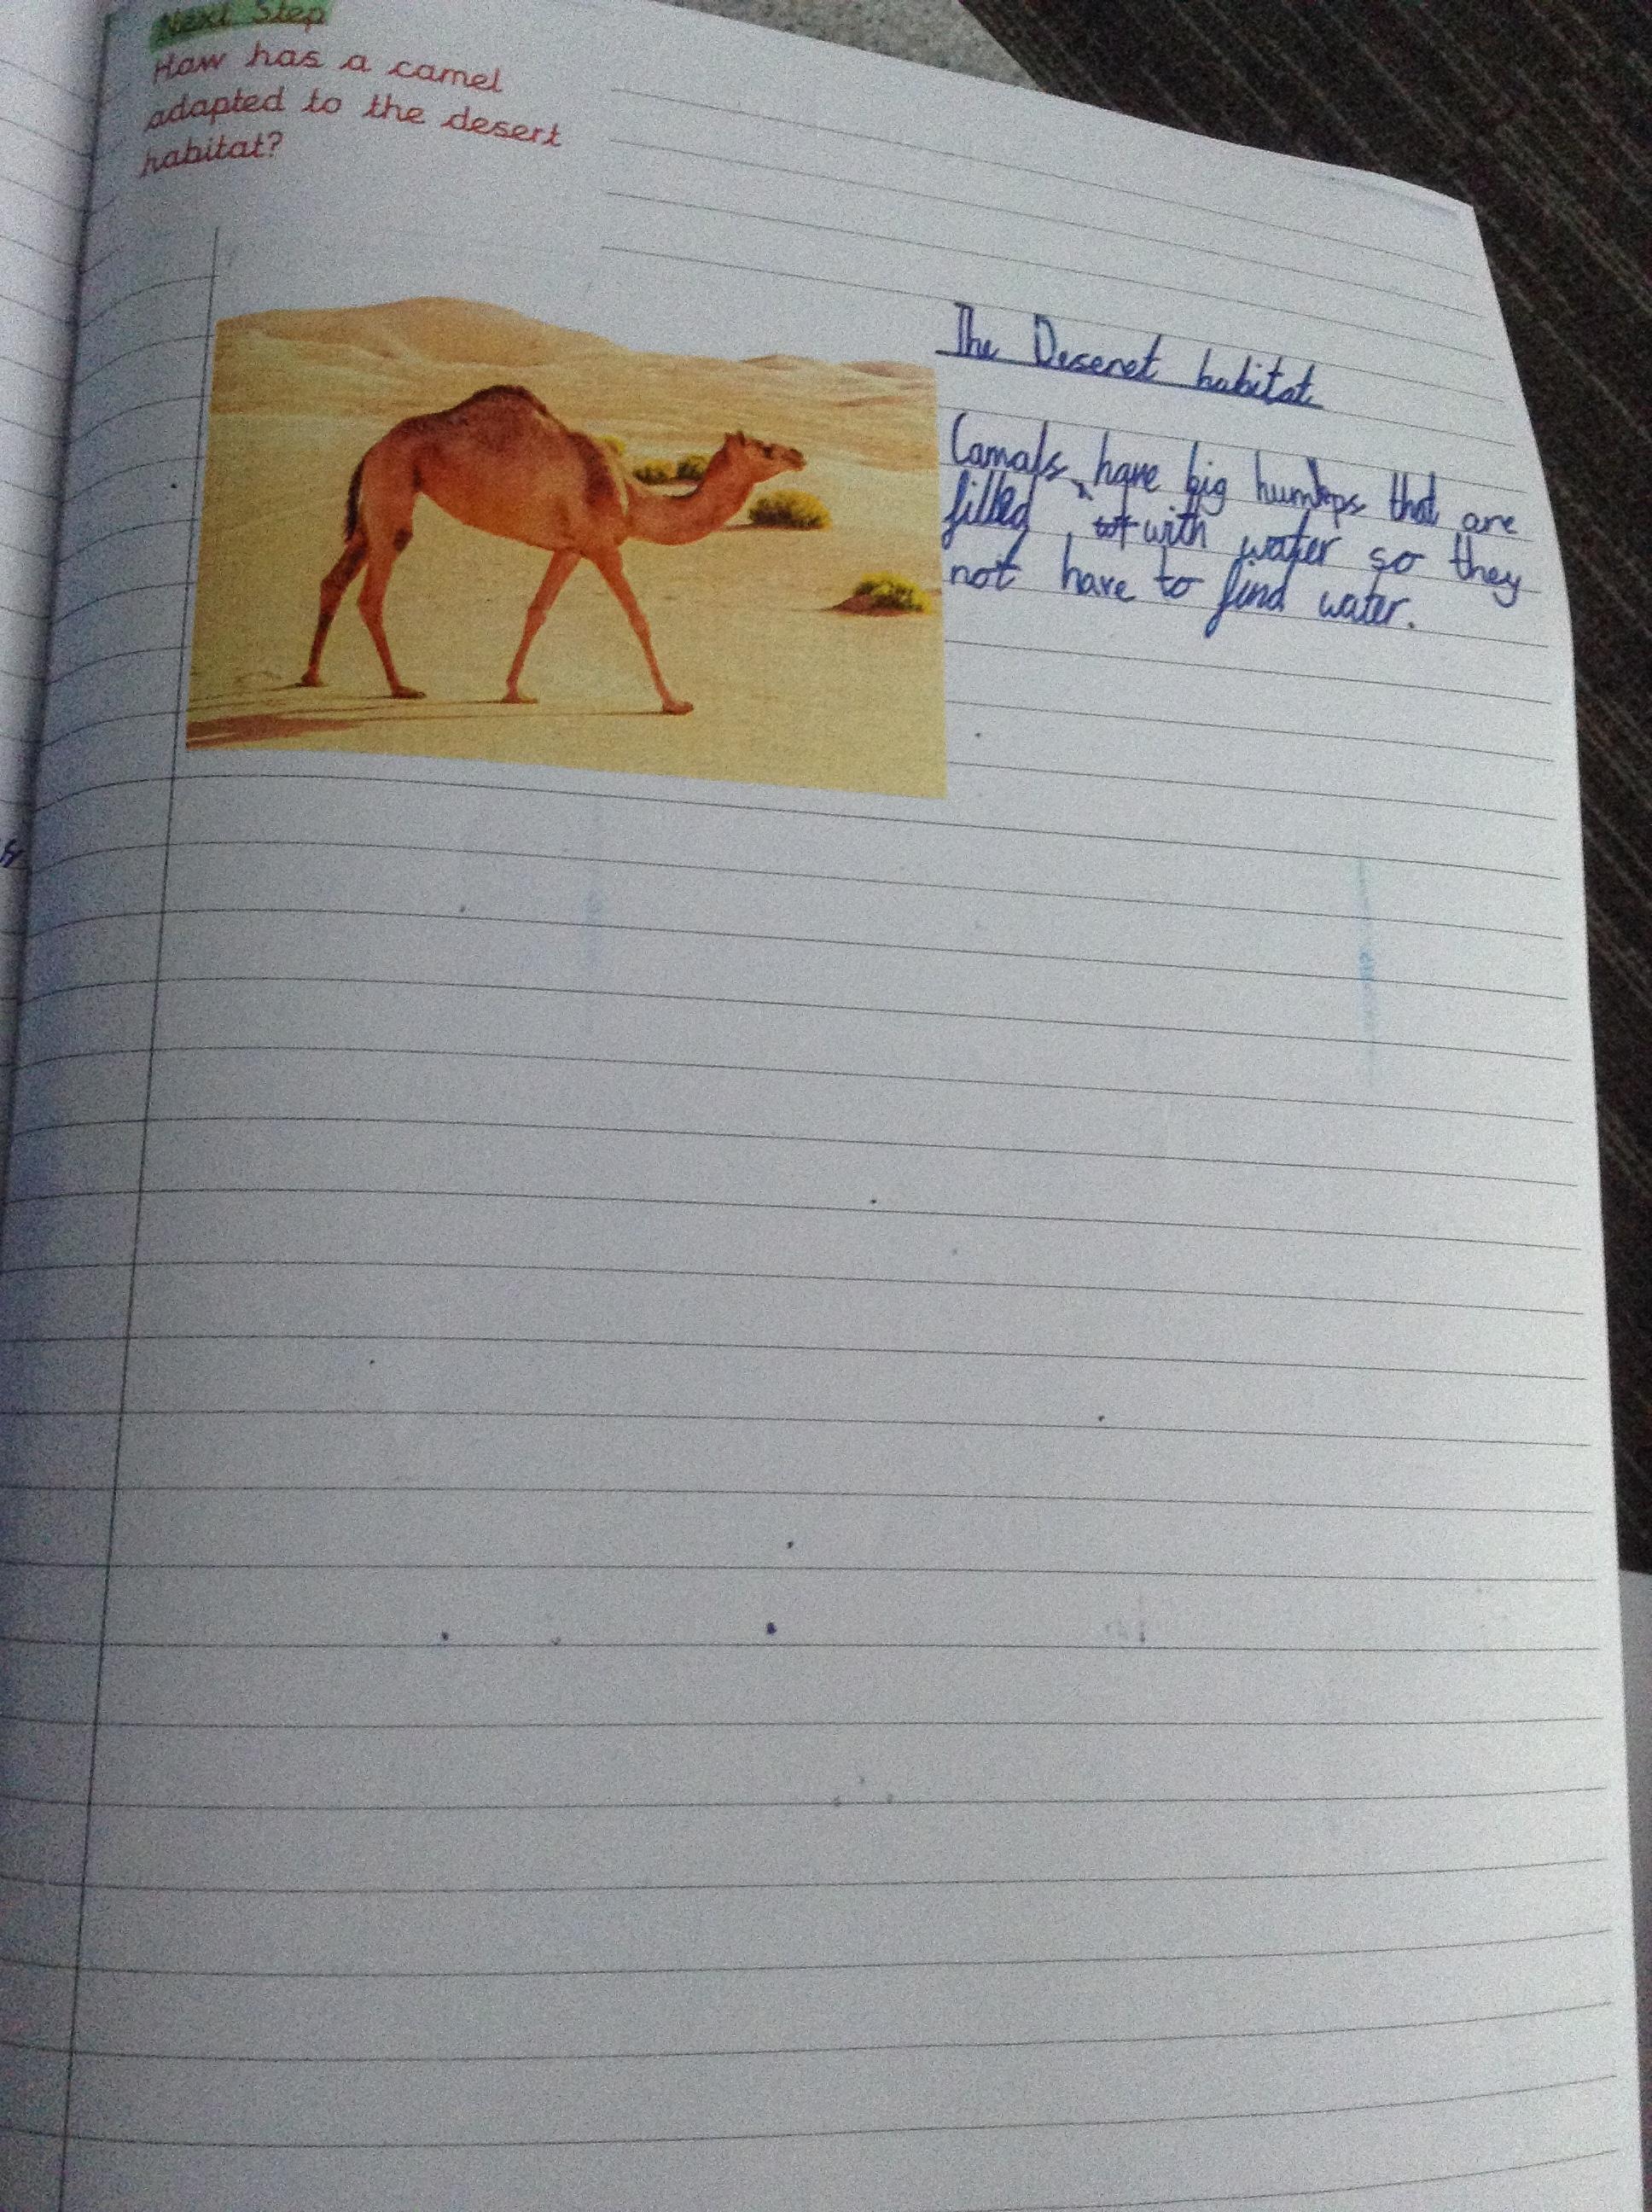 Next Step
How has a camel
adapted to the desert
habitat?
The Deseret habitat
Camals have big humps that are
filled with water so they
not have to find water.